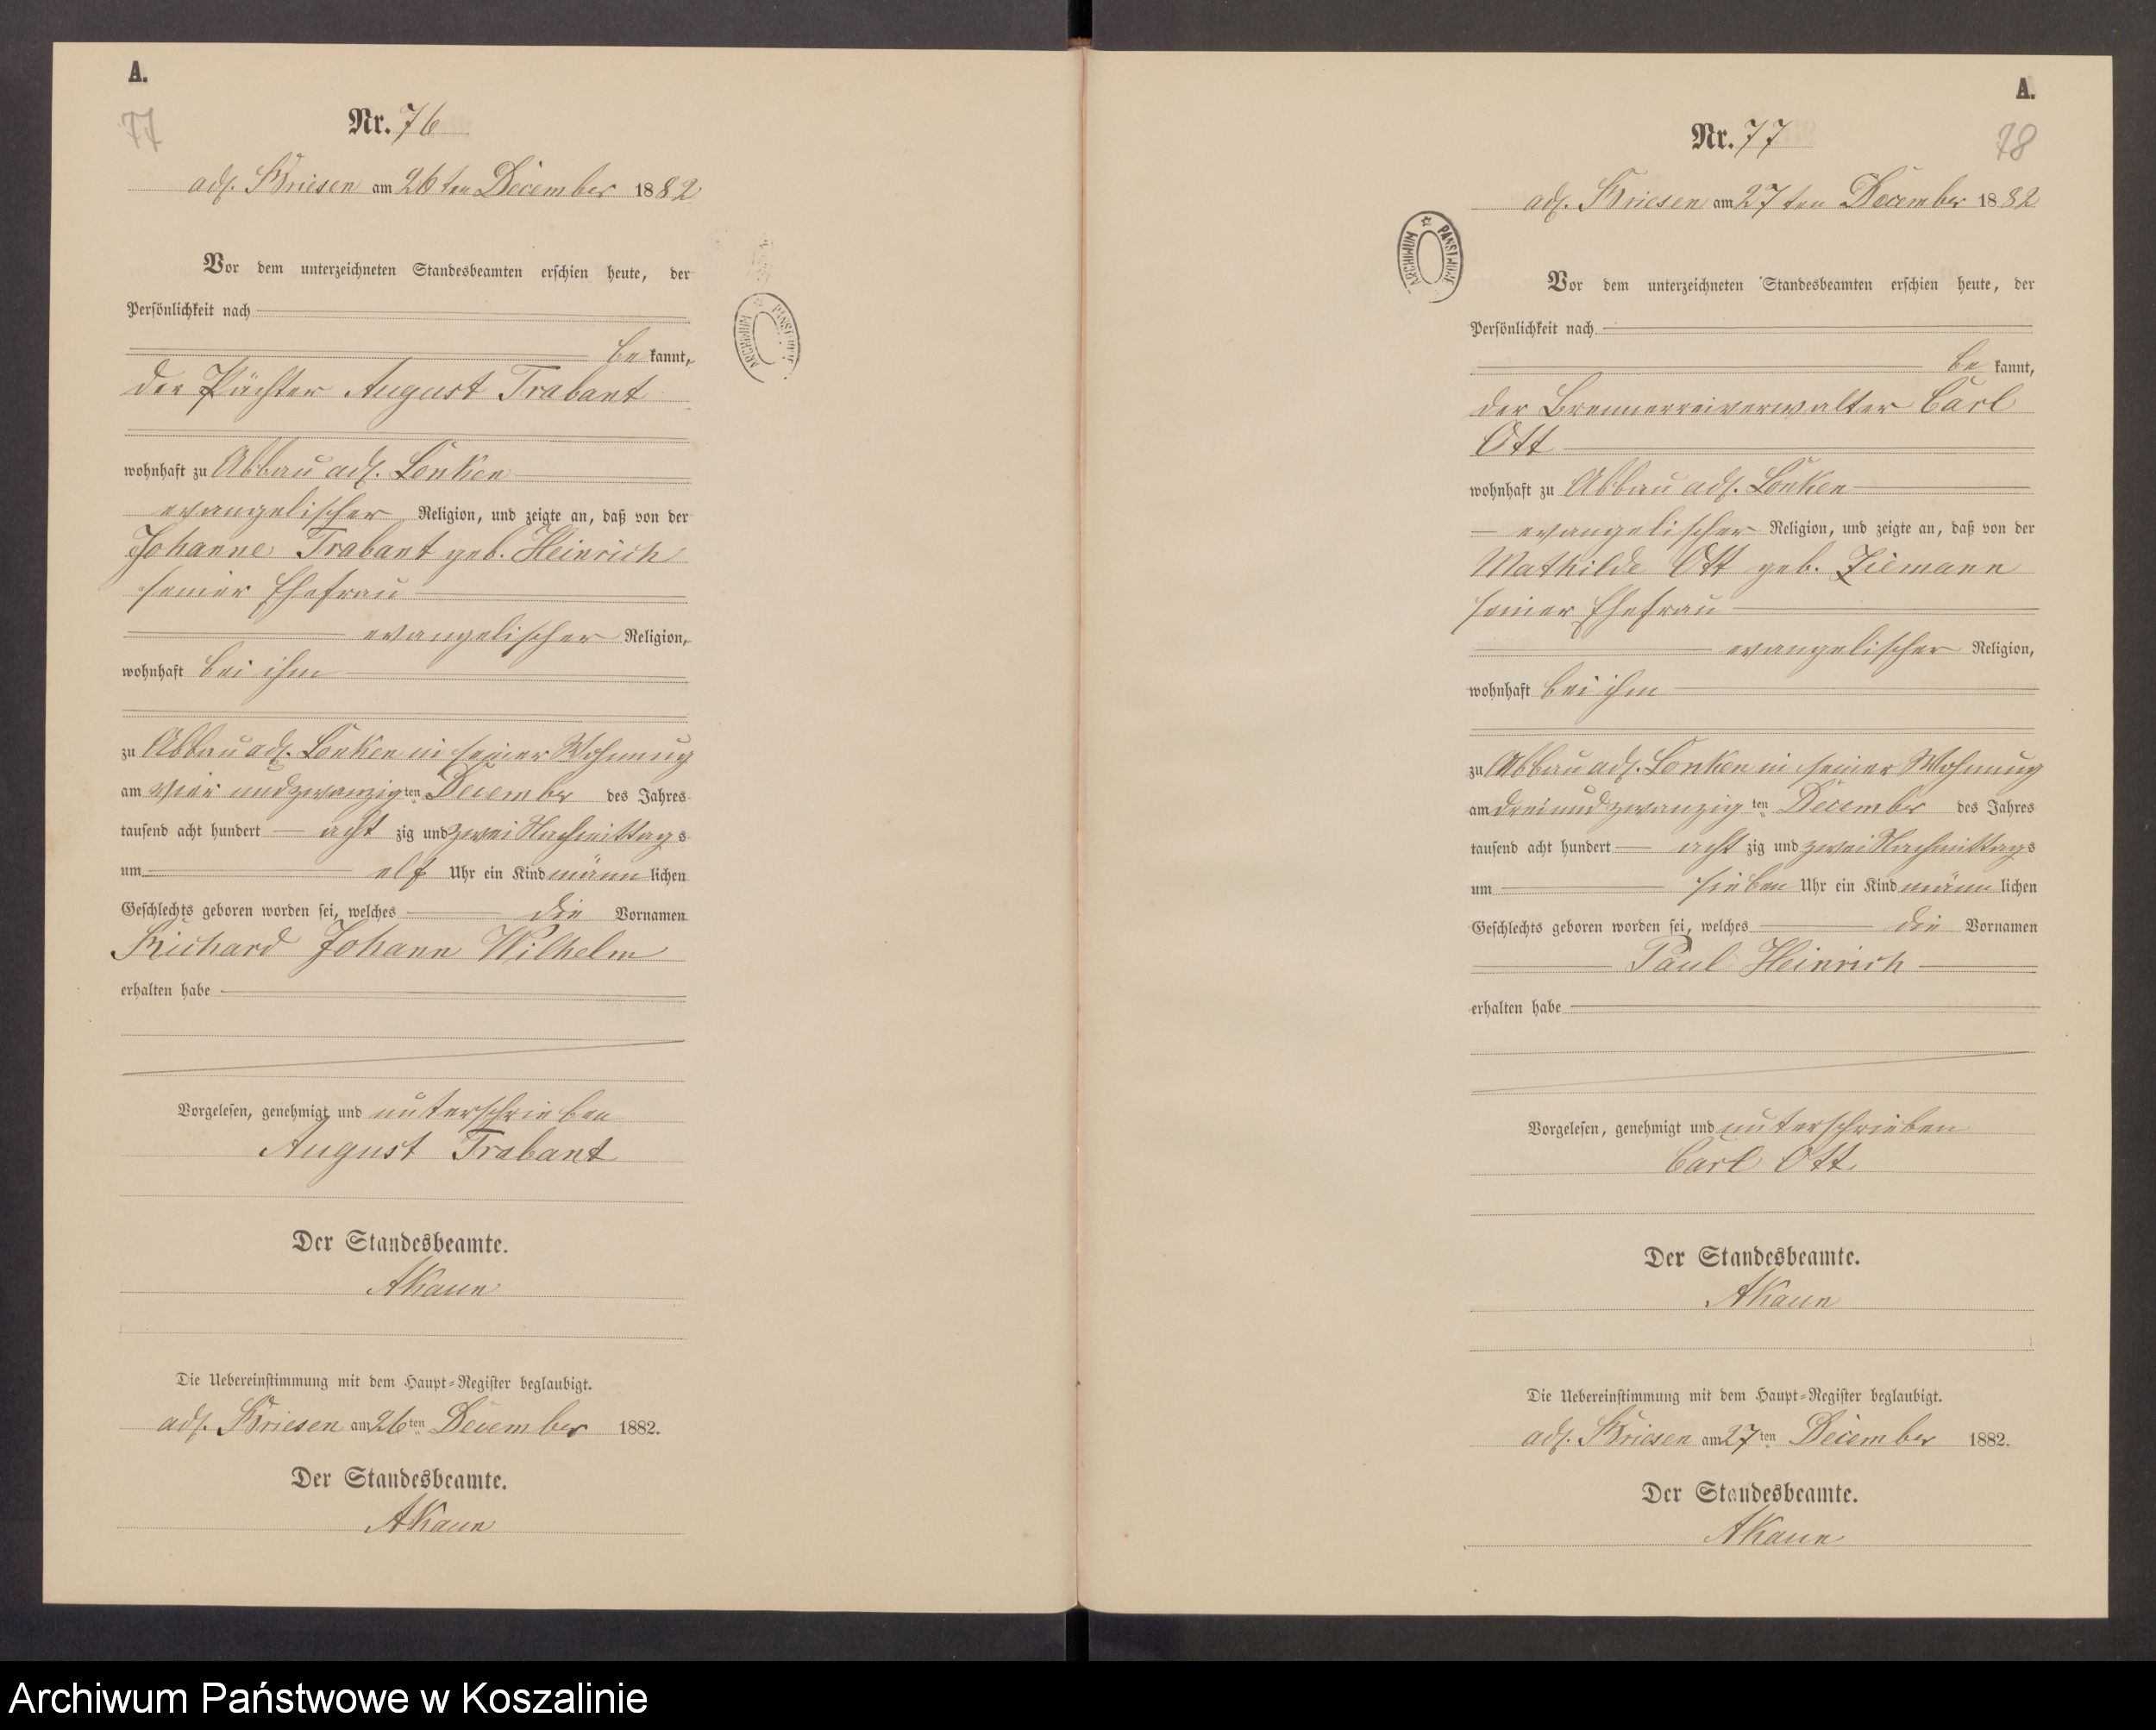 A.
77
Nr. 76
adl. Briesen am 26ten December 1882
Vor dem unterzeichneten Standesbeamten erschien heute, der
Persönlichkeit nach
be kannt,
der Pächter August Trabant
wohnhaft zu Abbau adl. Lonken
evangelischer Religion, und zeigte an, daß von der
Johanne Trabant geb. Heinrich
seiner Ehefrau
evangelischer Religion,
wohnhaft bei ihm
zu Abbau adl. Lonken in seiner Wohnung
am vier und zwanzig ten December des Jahres
tausend acht hundert acht zig und zwei Nachmittags
um elf Uhr ein Kind männ lichen
Geschlechts geboren worden sei, welches die Vornamen
Richard Johann Wilhelm
erhalten habe
Vorgelesen, genehmigt und unterschrieben
August Trabant
Der Standesbeamte.
Die Uebereinstimmung mit dem Haupt-Register beglaubigt.
adl. Briesen am 26ten December 1882.
Der Standesbeamte.
ARCHIWUM
A.
78
Nr. 77
adl. Briesen am 27ten December 1882
ARCHIWUM PAŃSTWOWE
Vor dem unterzeichneten Standesbeamten erschien heute, der
Persönlichkeit nach
be kannt,
der Brennereiverwalter Carl
Ott
wohnhaft zu Abbau adl. Lonken
evangelischer Religion, und zeigte an, daß von der
Mathilde Ott geb. Ziemann
seiner Ehefrau
evangelischer Religion,
wohnhaft bei ihm
zu Abbau adl. Lonken in seiner Wohnung
am drei und zwanzig ten December des Jahres
tausend acht hundert acht zig und zwei Nachmittags
um sieben Uhr ein Kind männ lichen
Geschlechts geboren worden sei, welches die Vornamen
Paul Heinrich
erhalten habe
Vorgelesen, genehmigt und unterschrieben
Carl Ott
Der Standesbeamte.
Die Uebereinstimmung mit dem Haupt-Register beglaubigt.
adl. Briesen am 27ten December 1882.
Der Standesbeamte.
Archiwum Państwowe w Koszalinie